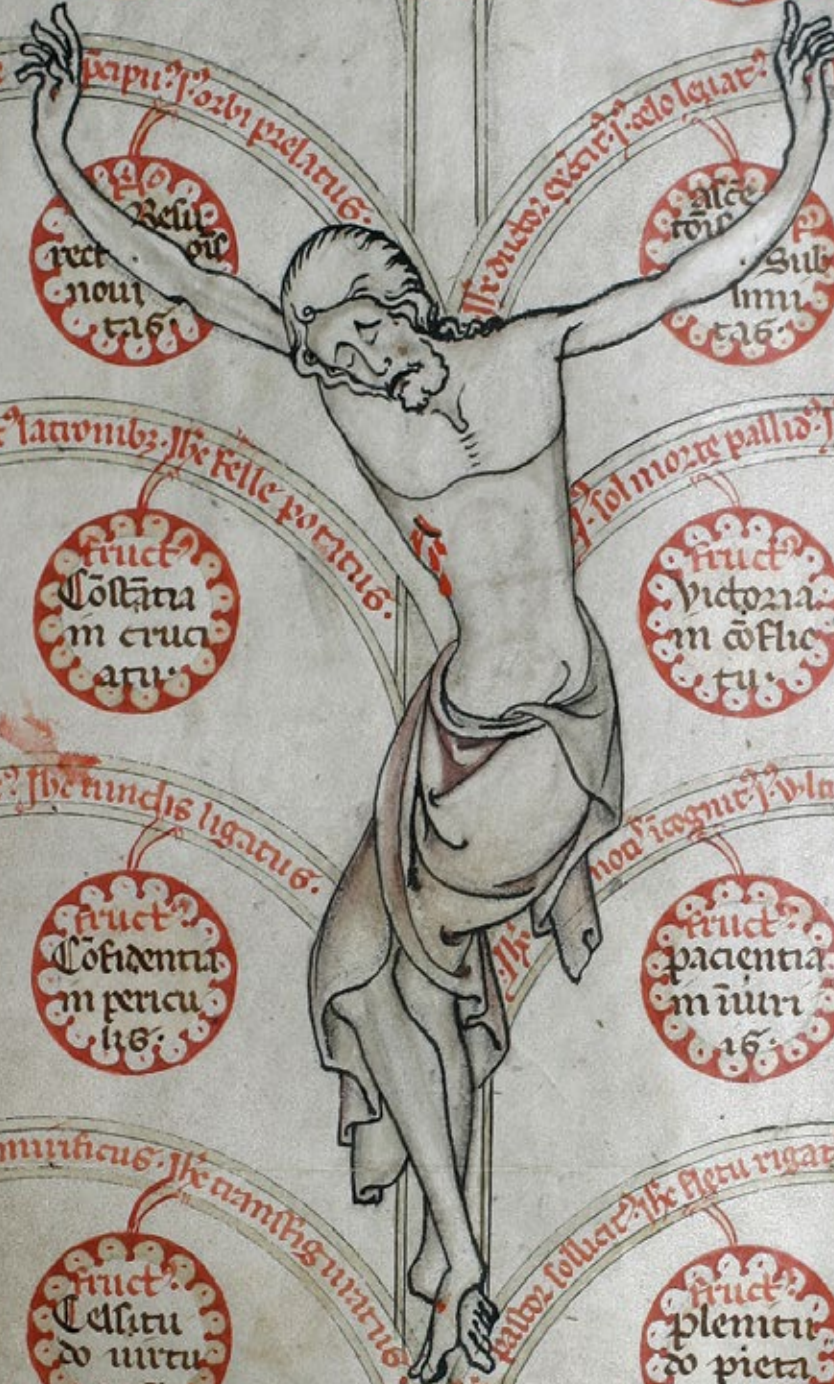 pͥncipiū. Jhc orbi prelatus.
Jhc ductor exercit9. Jhc celo levat9
Resur
rect ōis
noui
tas.
ascē
tōis
Sub
limi
tas.
lationibꝫ. Jhe felle potatus.
Jhc sol morte pallid9.
fruct9
Cōstātia
in cruci
atu.
fruct9
Victoria
in cōflic
tu.
Jhc vinclis ligatus.
Jhc not9 icognit9. Jhc
fruct9
Cōfidentia
in pericu
lis.
fruct9
pacientia
in īiuri
is.
mirificus. Jhc transfiguratus.
pastor sollicit9. Jhc fletu rigat9
fruct9
Celsitu
do uirtu
fruct9
plenitu
do pieta